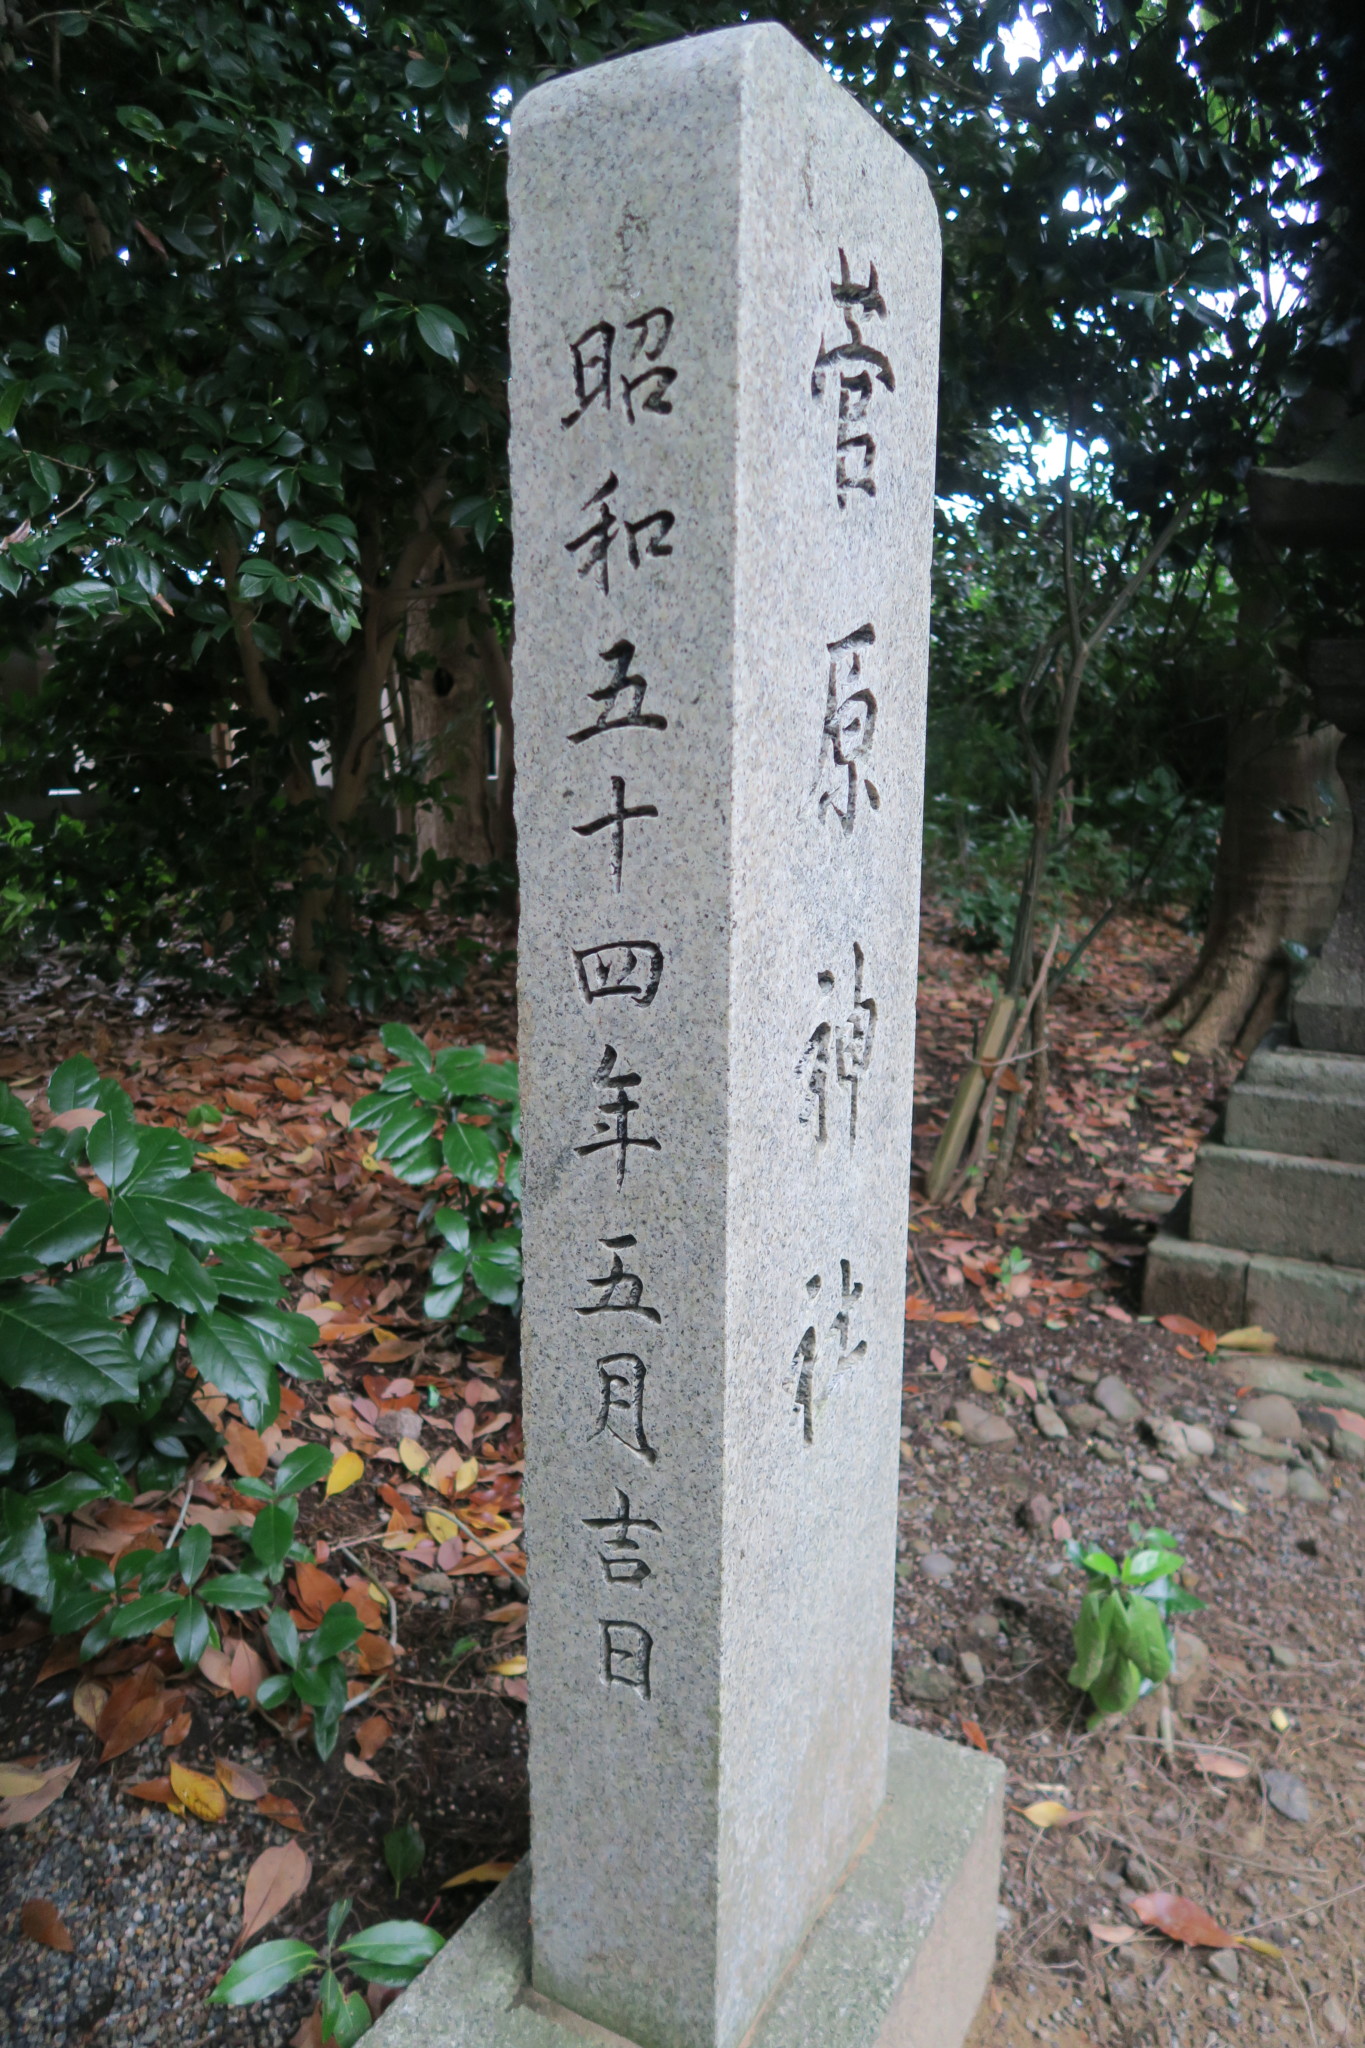 菅原神社
昭和五十四年五月吉日